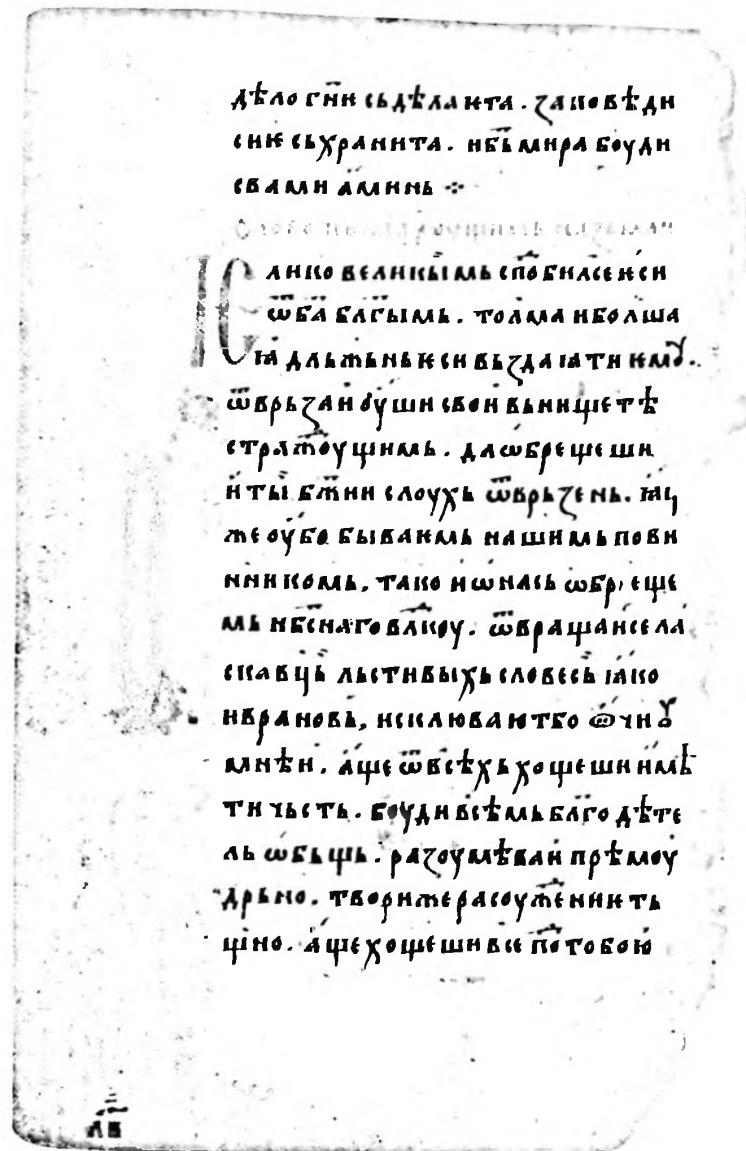 дѣло гн҃и съдѣлаѥта. ꙁаповѣди
сиѥ съхранита. и б҃ь мира боуди
с вами а҆минь ⁘
Ѥлико великыимь сп҃обилсе ѥси
ѿ б҃а бл҃гыимь. толма и болша
ꙗ҆ дльжьнь ѥси въꙁдаꙗти ѥмꙋ.
ѿврьꙁаи оуши свои вь нищетѣ
стражⷣоущимь. да ѡбрещеши
и҆ ты б҃жии слоухь ѿврьꙁень. ꙗц
же оубо бываѥмь нашимь пови
нникомь. тако и ѡ нась ѡбреще
мь нб҃снаго вл҃коу. ѿвращаисе ла
скавць льстивыхь словесь ꙗко
и врановь, исклюваютбо ѻчи ꙋ
мнѣи. а҆ще ѿ всѣхь хощеши имѣ
ти чьсть. боуди всѣмь бл҃годѣте
ль ѡбьщь. раꙁоумѣваи прѣмоу
дрьно. твори же расоужⷣениѥ ть
щно. а҆ще хощеши все по тобою
л҃в